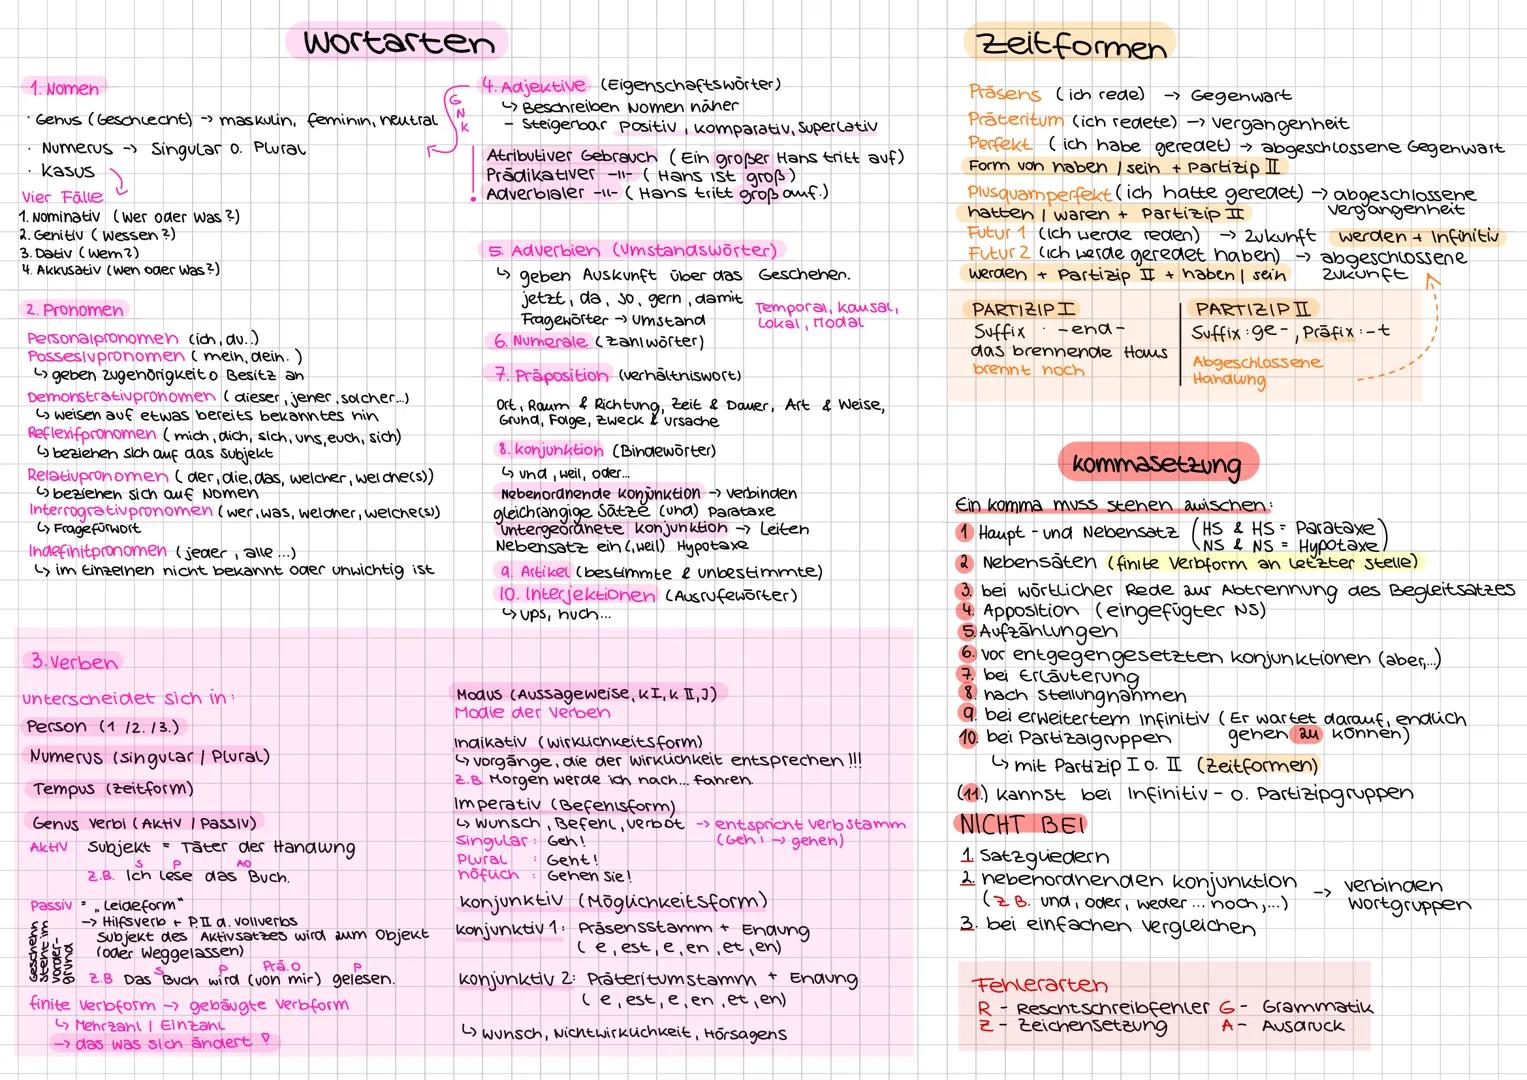 Wortarten
1. Nomen
· Genus (Geschlecht) -> maskulin, feminin, neutral
· Numerus -> Singular o. Plural
· Kasus
Vier Fälle
1. Nominativ (Wer oder Was?)
2. Genitiv (Wessen?)
3. Dativ (Wem?)
4. Akkusativ (Wen oder Was?)
2. Pronomen
Personalpronomen (ich, du..)
Possesivpronomen (mein, dein. )
↳ geben Zugehörigkeit o Besitz an
Demonstrativpronomen (dieser, jener, solcher...)
↳ weisen auf etwas bereits bekanntes hin
Reflexifpronomen (mich, dich, sich, uns, euch, sich)
↳ beziehen sich auf das Subjekt
Relativpronomen (der, die, das, welcher, welche(s))
↳ beziehen sich auf Nomen
Interrogrativpronomen (wer, was, welcher, welche(s))
↳ Fragefürwort
Indefinitpronomen (jeder, alle ...)
↳ im einzelnen nicht bekannt oder unwichtig ist
4. Adjektive (Eigenschaftswörter)
G
N
K
↳ Beschreiben Nomen näher
- Steigerbar Positiv, Komparativ, Superlativ
! Atributiver Gebrauch (Ein großer Hans tritt auf)
Prädikativer -11- (Hans ist groß)
Adverbialer -11- (Hans tritt groß auf.)
5. Adverbien (Umstandswörter)
↳ geben Auskunft über das Geschehen.
jetzt, da, so, gern, damit
Fragewörter -> Umstand
Temporal, Kausal,
Lokal, Modal
6. Numerale (Zahlwörter)
7. Präposition (Verhältniswort)
Ort, Raum & Richtung, Zeit & Dauer, Art & Weise,
Grund, Folge, Zweck & Ursache
8. Konjunktion (Bindewörter)
↳ und, weil, oder...
Nebenordnende Konjunktion -> Verbinden
gleichrangige Sätze (und) Parataxe
Untergeordnete Konjunktion -> Leiten
Nebensatz ein (, weil) Hypotaxe
9. Artikel (bestimmte & unbestimmte)
10. Interjektionen (Ausrufewörter)
↳ ups, huch...
3. Verben
unterscheidet sich in:
Person (1 /2. /3.)
Numerus (Singular / Plural)
Tempus (Zeitform)
Genus Verbi (Aktiv / Passiv)
Aktiv Subjekt = Täter der Handlung
S P AO
z.B. Ich lese das Buch.
Passiv = „Leideform"
-> Hilfsverb + P.II d. Vollverbs
Subjekt des Aktivsatzes wird zum Objekt
(oder weggelassen)
Geschehn
steht im
Vorder-
grund
S P Prä.O P
z.B Das Buch wird (von mir) gelesen.
finite Verbform -> gebäugte Verbform
↳ Mehrzahl / Einzahl
-> das was sich ändert !
Modus (Aussageweise, K I, K II, J)
Modie der Verben
Indikativ (Wirklichkeitsform)
↳ Vorgänge, die der Wirklichkeit entsprechen !!!
z.B. Morgen werde ich nach... fahren.
Imperativ (Befehlsform)
↳ Wunsch, Befehl, Verbot -> entspricht Verbstamm
Singular : Geh! (Geh! -> gehen)
Plural : Geht!
höflich : Gehen Sie!
Konjunktiv (Möglichkeitsform)
Konjunktiv 1: Präsensstamm + Endung
(e, est, e, en, et, en)
Konjunktiv 2: Präteritumstamm + Endung
(e, est, e, en, et, en)
↳ Wunsch, Nichtwirklichkeit, Hörsagens
Zeitformen
Präsens (ich rede) -> Gegenwart
Präteritum (ich redete) -> Vergangenheit
Perfekt (ich habe geredet) -> abgeschlossene Gegenwart
Form von haben / sein + Partizip II
Plusquamperfekt (ich hatte geredet) -> abgeschlossene
Vergangenheit
hatten / waren + Partizip II
Futur 1 (Ich werde reden) -> Zukunft werden + Infinitiv
Futur 2 (ich werde geredet haben) -> abgeschlossene
Zukunft
werden + Partizip II + haben / sein
PARTIZIP I
Suffix : -end-
das brennende Haus
brennt noch
PARTIZIP II
Suffix : ge-, Präfix : -t
Abgeschlossene
Handlung
Kommasetzung
Ein Komma muss stehen zwischen:
1 Haupt- und Nebensatz (HS & HS = Parataxe
NS & NS = Hypotaxe)
2 Nebensäten (finite Verbform an letzter Stelle)
3. bei wörtlicher Rede zur Abtrennung des Begleitsatzes
4. Apposition (eingefügter NS)
5. Aufzählungen
6. vor entgegengesetzten Konjunktionen (aber,...)
7. bei Erläuterung
8. nach Stellungnahmen
9. bei erweitertem Infinitiv (Er wartet darauf, endlich
gehen zu können)
10. bei Partizalgruppen
↳ mit Partizip I o. II (Zeitformen)
(11.) kannst bei Infinitiv- o. Partizipgruppen
NICHT BEI
1. Satzgliedern
2. nebenordnenden Konjunktion
(z B. und, oder, weder ... noch,...)
-> verbinden
Wortgruppen
3. bei einfachen Vergleichen
Fehlerarten
R - Reschtschreibfehler G - Grammatik
Z - Zeichensetzung A - Ausdruck